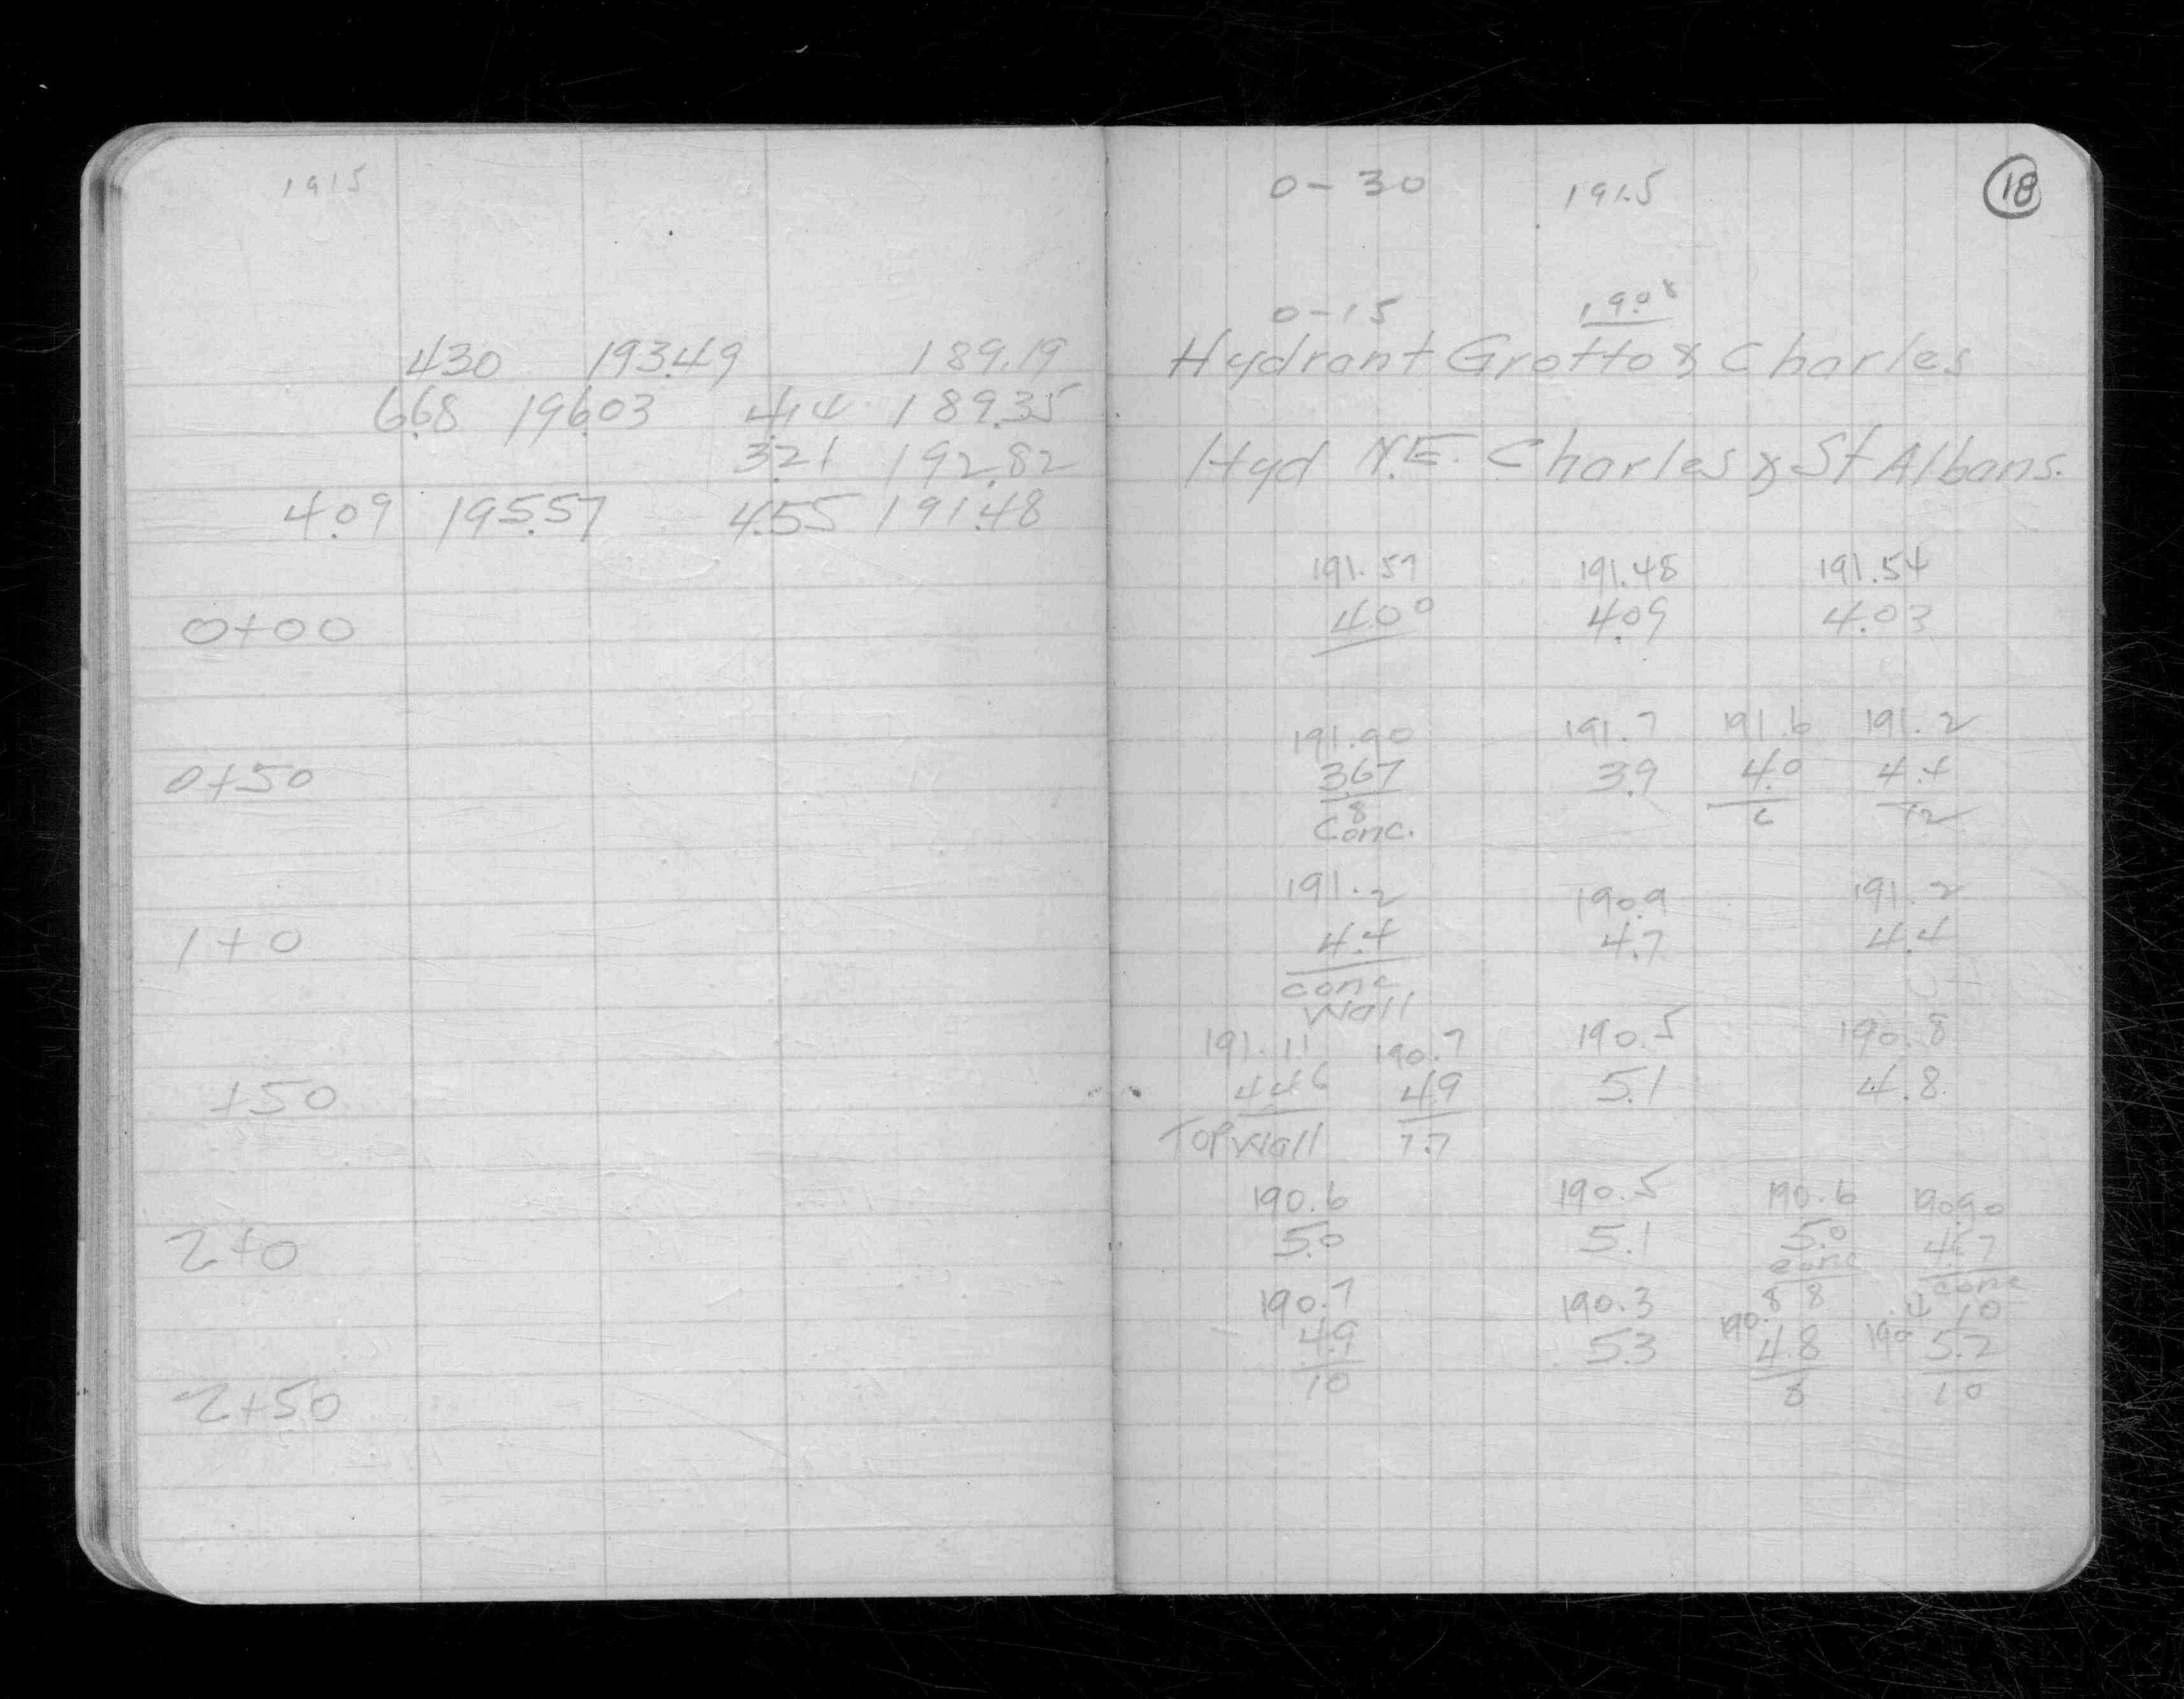 1915
4.30 193.49 189.19
6.68 196.03 4.14 189.35
3.21 192.82
4.09 195.57 4.55 191.48
0+00
0+50
1+0
+50
2+0
2+50
18
0-30 191.5
0-15 190.8
Hydrant Grotto & Charles
Hyd N.E. Charles & St Albans.
191.57 191.48 191.54
4.00 4.09 4.03
191.90 191.7 191.6 191.2
3.67 3.9 4.0 4.4
8 6 12
Conc.
191.2 190.9 191.2
4.4 4.7 4.4
conc.
Wall
191.11 190.7 190.5 190.8
4.46 4.9 5.1 4.8
Top Wall 7.7
190.6 190.5 190.6 190.90
5.0 5.1 5.0 4.67
conc conc
8 10
190.7 190.3 190.8 190.4
4.9 5.3 4.8 5.2
10 8 10